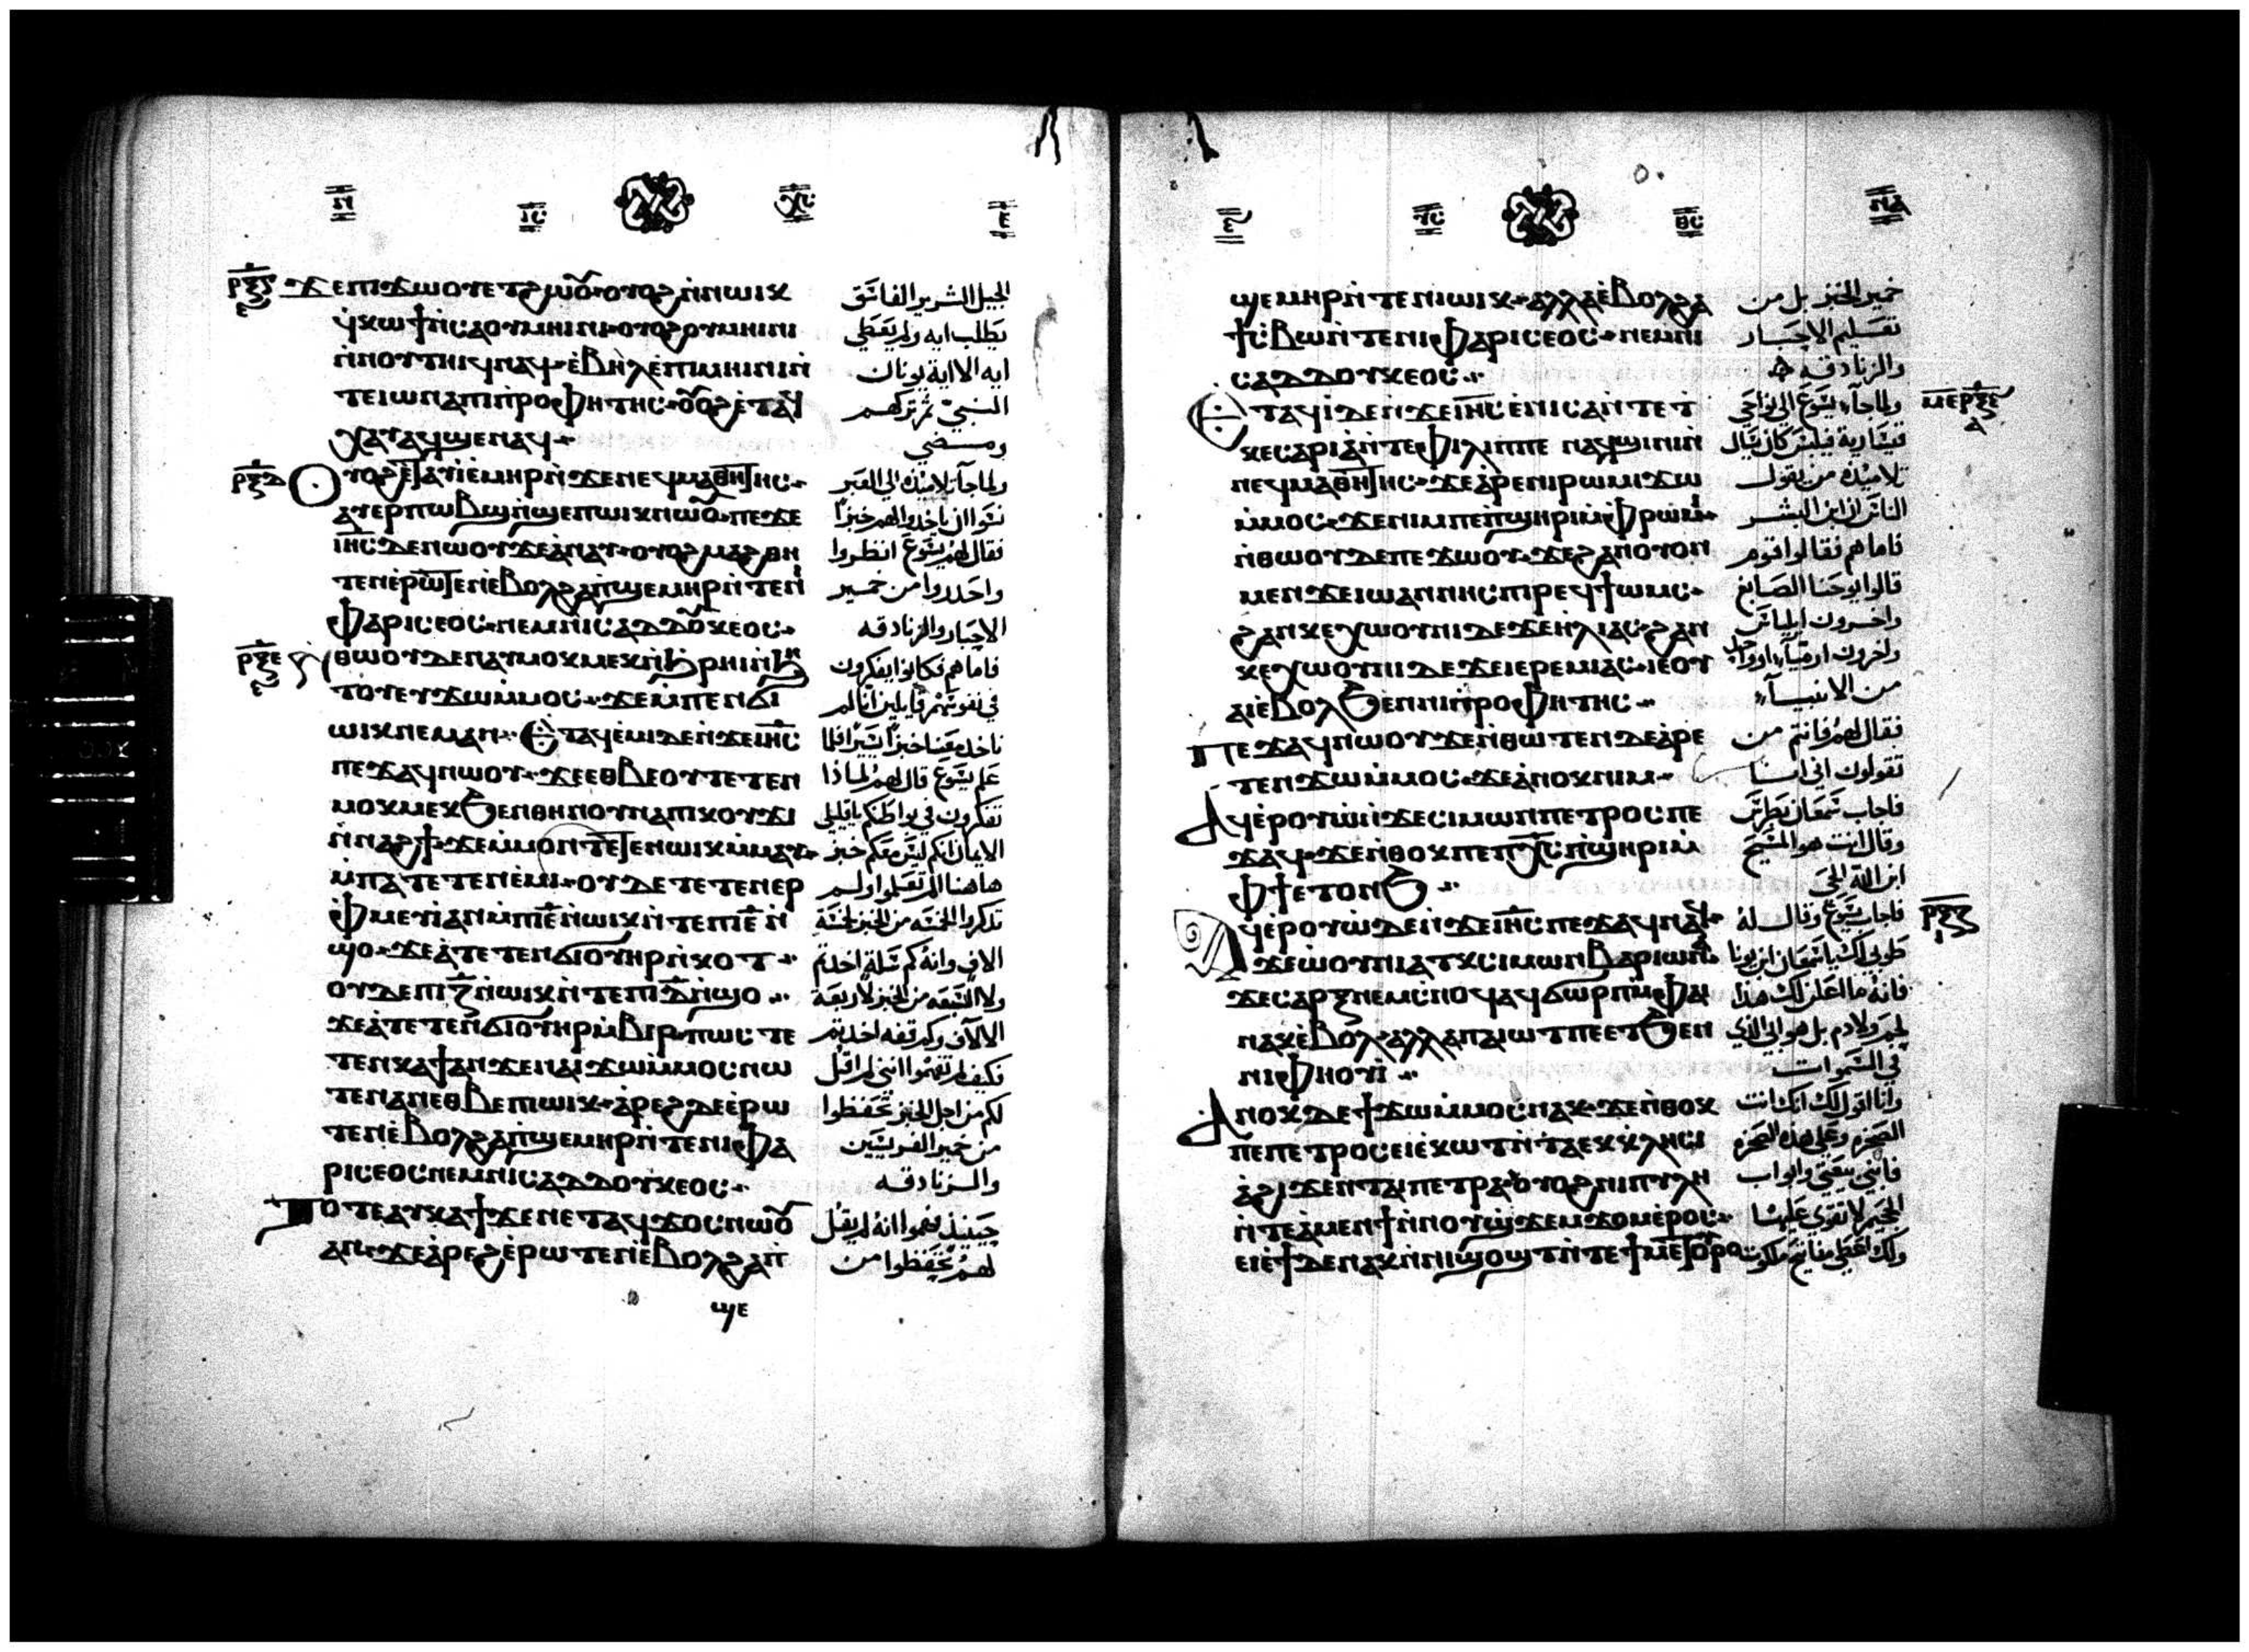 ⲛ ⲓⲥ ⲭⲥ ⲉ
ϫⲉⲡⲓϫⲱⲟⲩⲉⲧϩⲱⲟⲩ ⲟⲩⲟϩ ⲛⲛⲱⲓⲕ
ϥⲕⲱϯⲛⲥⲁⲟⲩⲙⲏⲓⲛⲓ ⲟⲩⲟϩⲟⲩⲙⲏⲓⲛⲓ
ⲛⲛⲟⲩⲧⲏⲓϥⲛⲁϥ ⲉⲃⲏⲗⲉⲡⲓⲙⲏⲓⲛⲓⲛ
ⲧⲉⲓⲱⲛⲁⲡⲓⲡⲣⲟⲫⲏⲧⲏⲥ ⲟⲩⲟϩⲉⲧⲁϥ
ⲭⲁⲧⲁϥϣⲉⲛⲁϥ
ⲣⲝⲇ ⲟⲩⲟϩⲉⲧⲁⲩⲓⲉⲙⲏⲣⲛϫⲉⲛⲉϥⲙⲁⲑⲏⲧⲏⲥ
ⲁⲩⲉⲣⲡⲱⲃϣⲛϣⲉⲡⲱⲓⲕⲛⲱⲟⲩ ⲡⲉϫⲉ
ⲓⲏⲥⲇⲉⲛⲱⲟⲩϫⲉⲁⲛⲁⲩ ⲟⲩⲟϩⲙⲁϩⲑⲏ
ⲧⲉⲛⲉⲣⲱⲧⲉⲛⲉⲃⲟⲗϩⲁⲡϣⲉⲙⲏⲣⲛⲧⲉⲛⲓ
ⲫⲁⲣⲓⲥⲉⲟⲥ ⲛⲉⲙⲛⲓⲥⲁⲇⲇⲟⲩⲕⲉⲟⲥ
ⲣⲝⲉ ⲛⲑⲱⲟⲩⲇⲉⲛⲁⲩⲙⲟⲕⲙⲉⲕⲛϧⲣⲏⲓⲛϧⲏ
ⲧⲟⲩⲉⲩϫⲱⲙⲙⲟⲥ ϫⲉⲙⲡⲉⲛϭⲓ
ⲱⲓⲕⲛⲉⲙⲁⲛ ⲉⲧⲁϥⲉⲙⲓⲇⲉⲛϫⲉⲓⲏⲥ
ⲡⲉϫⲁϥⲛⲱⲟⲩ ϫⲉⲉⲑⲃⲉⲟⲩⲧⲉⲧⲉⲛ
ⲙⲟⲕⲙⲉⲕϧⲉⲛⲑⲏⲛⲟⲩⲛⲁⲡⲓⲕⲟⲩϫⲓ
ⲛⲛⲁϩϯ ϫⲉⲙⲙⲟⲛⲧⲉⲧⲉⲛⲱⲓⲕⲙⲙⲁⲩ
ⲙⲡⲁⲧⲉⲧⲉⲛⲉⲙⲓ ⲟⲩⲇⲉⲧⲉⲧⲉⲛⲉⲣ
ⲫⲙⲉⲩⲓⲁⲛⲙⲡⲓⲉⲛⲱⲓⲕⲛⲧⲉⲡⲓⲉⲛ
ϣⲟ ϫⲉⲁⲧⲉⲧⲉⲛϭⲓⲟⲩⲏⲣⲛⲕⲟⲧ
ⲟⲩⲇⲉⲡⲓⲍⲛⲱⲓⲕⲛⲧⲉⲡⲓⲇⲛϣⲟ
ϫⲉⲁⲧⲉⲧⲉⲛϭⲓⲟⲩⲏⲣⲙⲃⲓⲣ ⲡⲱⲥⲧⲉ
ⲧⲉⲛⲕⲁϯⲁⲛϫⲉⲛⲁⲓϫⲱⲙⲙⲟⲥⲛⲱ
ⲧⲉⲛⲁⲛⲉⲑⲃⲉⲡⲓⲱⲓⲕ ⲁⲣⲉϩⲇⲉⲉⲣⲱ
ⲧⲉⲛⲉⲃⲟⲗϩⲁⲡϣⲉⲙⲏⲣⲛⲧⲉⲛⲓⲫⲁ
ⲣⲓⲥⲉⲟⲥⲛⲉⲙⲛⲓⲥⲁⲇⲇⲟⲩⲕⲉⲟⲥ
ⲧⲟⲧⲉⲁⲩⲕⲁϯϫⲉⲛⲉⲧⲁϥϫⲟⲥⲛⲱⲟⲩ
ⲁⲛ ϫⲉⲁⲣⲉϩⲉⲣⲱⲧⲉⲛⲉⲃⲟⲗϩⲁⲡ
ϣⲉ
الجيل الشرير الفاسق
يطلب ايه ولم يعطي
ايه الا اية يونان
النبي ثم تركهم
ومضي
ولما جآ تلاميذه الي العبر
نسوا ان ياخدوا لهم خبزا
فقال لهم يسوع انظروا
واحدروا من خمير
الاحبار والزنادقه
فاما هم فكانوا يفكرون
في نفوسهم قايلين اننا لم
ناخد معنا خبزا
علم يسوع قال لهم لماذا
تفكرون في بواطنكم يا قليلي
الايمان انكم ليس معكم خبز
هاهنا الم تعملوا ولم
تذكروا الخمسه من الخبز لخمسة
الاف وانه كم سلة اخدتم
ولا السبعه من الخبز لاربعة
الالاف وكم قفه اخدتم
فكيف لم تفهموا انني لم اقل
لكم من اجل الخبز تحفظوا
من خمير الفريسيين
والزنادقه
حينيذ فهموا انه لم يقل
لهم تحفظوا من
ⲩⲥ ⲑⲥ ⲛⲁ
ϣⲉⲙⲏⲣⲛⲧⲉⲛⲓⲱⲓⲕ ⲁⲗⲗⲁⲉⲃⲟⲗϩⲁ
ϯⲥⲃⲱⲛⲧⲉⲛⲓⲫⲁⲣⲓⲥⲉⲟⲥ ⲛⲉⲙⲛⲓ
ⲥⲁⲇⲇⲟⲩⲕⲉⲟⲥ
ⲉⲧⲁϥⲓⲇⲉⲛϫⲉⲓⲏⲥⲉⲛⲓⲥⲁⲛⲧⲉϯ
ⲕⲉⲥⲁⲣⲓⲁⲛⲧⲉⲫⲓⲗⲓⲡⲡⲉ ⲛⲁϥϣⲓⲛⲓⲛ
ⲛⲉϥⲙⲁⲑⲏⲧⲏⲥ ϫⲉⲁⲣⲉⲛⲓⲣⲱⲙⲓϫⲱ
ⲙⲙⲟⲥ ϫⲉⲛⲓⲙⲡⲉⲡϣⲏⲣⲓⲙⲫⲣⲱⲙⲓ
ⲛⲑⲱⲟⲩⲇⲉⲡⲉϫⲱⲟⲩ ϫⲉϩⲁⲛⲟⲩⲟⲛ
ⲙⲉⲛϫⲉⲓⲱⲁⲛⲛⲏⲥⲡⲓⲣⲉϥϯⲱⲙⲥ
ϩⲁⲛⲕⲉⲭⲱⲟⲩⲛⲓⲇⲉϫⲉⲏⲗⲓⲁⲥ ϩⲁⲛ
ⲕⲉⲭⲱⲟⲩⲛⲓⲇⲉϫⲉⲓⲉⲣⲉⲙⲓⲁⲥ ⲓⲉⲟⲩ
ⲁⲓⲉⲃⲟⲗϧⲉⲛⲛⲓⲡⲣⲟⲫⲏⲧⲏⲥ
ⲡⲉϫⲁϥⲛⲱⲟⲩϫⲉⲛⲑⲱⲧⲉⲛⲇⲉⲁⲣⲉ
ⲧⲉⲛϫⲱⲙⲙⲟⲥ ϫⲉⲁⲛⲟⲕⲛⲓⲙ
ⲁϥⲉⲣⲟⲩⲱⲛϫⲉⲥⲓⲙⲱⲛⲡⲉⲧⲣⲟⲥⲡⲉ
ϫⲁϥ ϫⲉⲛⲑⲟⲕⲡⲉⲡⲭⲥⲡϣⲏⲣⲓⲙ
ⲫϯⲉⲧⲟⲛϧ
ⲁϥⲉⲣⲟⲩⲱⲇⲉⲛϫⲉⲓⲏⲥⲡⲉϫⲁϥⲛⲁϥ
ϫⲉⲱⲟⲩⲛⲓⲁⲧⲕⲥⲓⲙⲱⲛⲃⲁⲣⲓⲱⲛⲁ
ϫⲉⲥⲁⲣⲝⲛⲉⲙⲥⲛⲟϥⲁϥϭⲱⲣⲡⲙⲫⲁⲓ
ⲛⲁⲕⲉⲃⲟⲗ ⲁⲗⲗⲁⲡⲁⲓⲱⲧⲡⲉⲉⲧϧⲉⲛ
ⲛⲓⲫⲏⲟⲩⲓ
ⲁⲛⲟⲕⲇⲉϯϫⲱⲙⲙⲟⲥⲛⲁⲕ ϫⲉⲛⲑⲟⲕ
ⲡⲉⲡⲉⲧⲣⲟⲥⲉⲓⲉⲕⲱⲧⲛⲧⲁⲉⲕⲕⲗⲏⲥⲓ
ⲁϩⲓϫⲉⲛⲧⲁⲓⲡⲉⲧⲣⲁ ⲟⲩⲟϩⲛⲓⲡⲩⲗⲏ
ⲛⲧⲉⲁⲙⲉⲛϯⲛⲛⲟⲩϣϫⲉⲙϫⲟⲙⲉⲣⲟⲥ
ⲉⲓⲉϯⲇⲉⲛⲁⲕⲛⲛⲓϣⲟϣⲧⲛⲧⲉϯⲙⲉⲧⲟⲩⲣⲟ
خمير الخبز بل من
تعليم الاحبار
والزنادقه
ⲙⲉ ⲣⲝⲉ ولما جآ يسوع الي نواحي
قيسارية فيلبس كان يسال
تلاميذه من يقول
الناس ان ابن البشر
فاما هم فقالوا قوم
قالوا يوحنا الصابغ
واخرون ايلياس
واخرون ارميآ او واحد
من الانبيآ
فقال لهم فانتم من
تقولون اني انا
فاجاب سمعان بطرس
وقال انت هو المسيح
ابن الله الحي
فاجاب يسوع وقال له ⲣⲝⲍ
طوبي لك يا سمعان ابن يونا
فانه ما اعلن لك هذا
لحم ولا دم بل هو ابي الذي
في السموات
وانا اقول لك انك انت
الصخرة وعلي هذه الصخره
فابني بيعتي وابواب
الجحيم لا تقوي عليها
ولك اعطي مفاتيح ملكوت